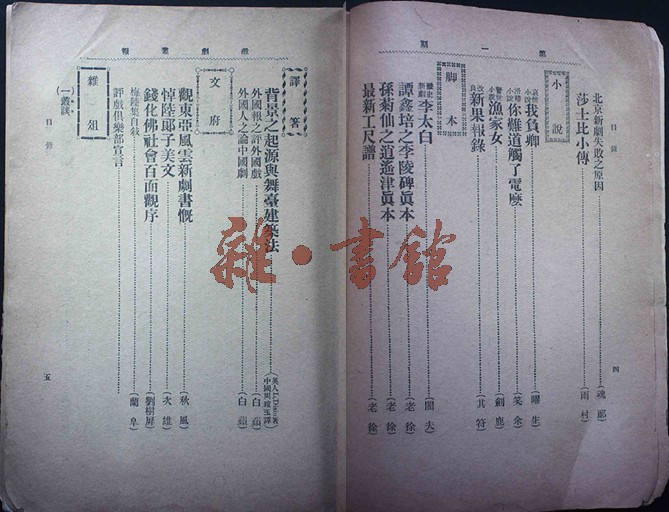 第一期
目錄
四
北京新劇失敗之原因
莎士比小傳
雨村
小說
哀情小說我負卿
曙生
滑稽小說你難道觸了電麼
笑余
警世小說漁家女
劍鹿
改良新果報錄
其符
脚本
歷史新劇李太白
闇夫
譚鑫培之李陵碑眞本
老徐
孫菊仙之逍遙津眞本
老徐
最新工尺譜
老徐
戲劇叢報
譯筈
背景之起源與舞臺建築法
外國報之評外國戲
白蘋
外國人之論中國劇
白蘋
文府
觀東亞風雲新劇書慨
秋風
悼陸郞子美文
次雄
錢化佛社會百面觀序
劉樹屏
梅陸集自敘
評戲俱樂部宣言
蘭皐
雜俎
(一)叢談
目錄
五
雜·書館